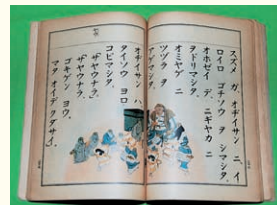 スズメ ガ、オヂイサン ニ、イ
ロイロ ゴチソウ ヲ シマシタ。
オホゼイ デ、ニギヤカ ニ
ヲドリマシタ。
オミヤゲ ニ
ツヅラ ヲ
アゲマシタ。
オヂイサン ハ、
タイソウ ヨロ
コビマシタ。
「サヤウナラ。」
「サヤウナラ。
ゴキゲン ヨウ。
マタ オイデ クダサイ。」